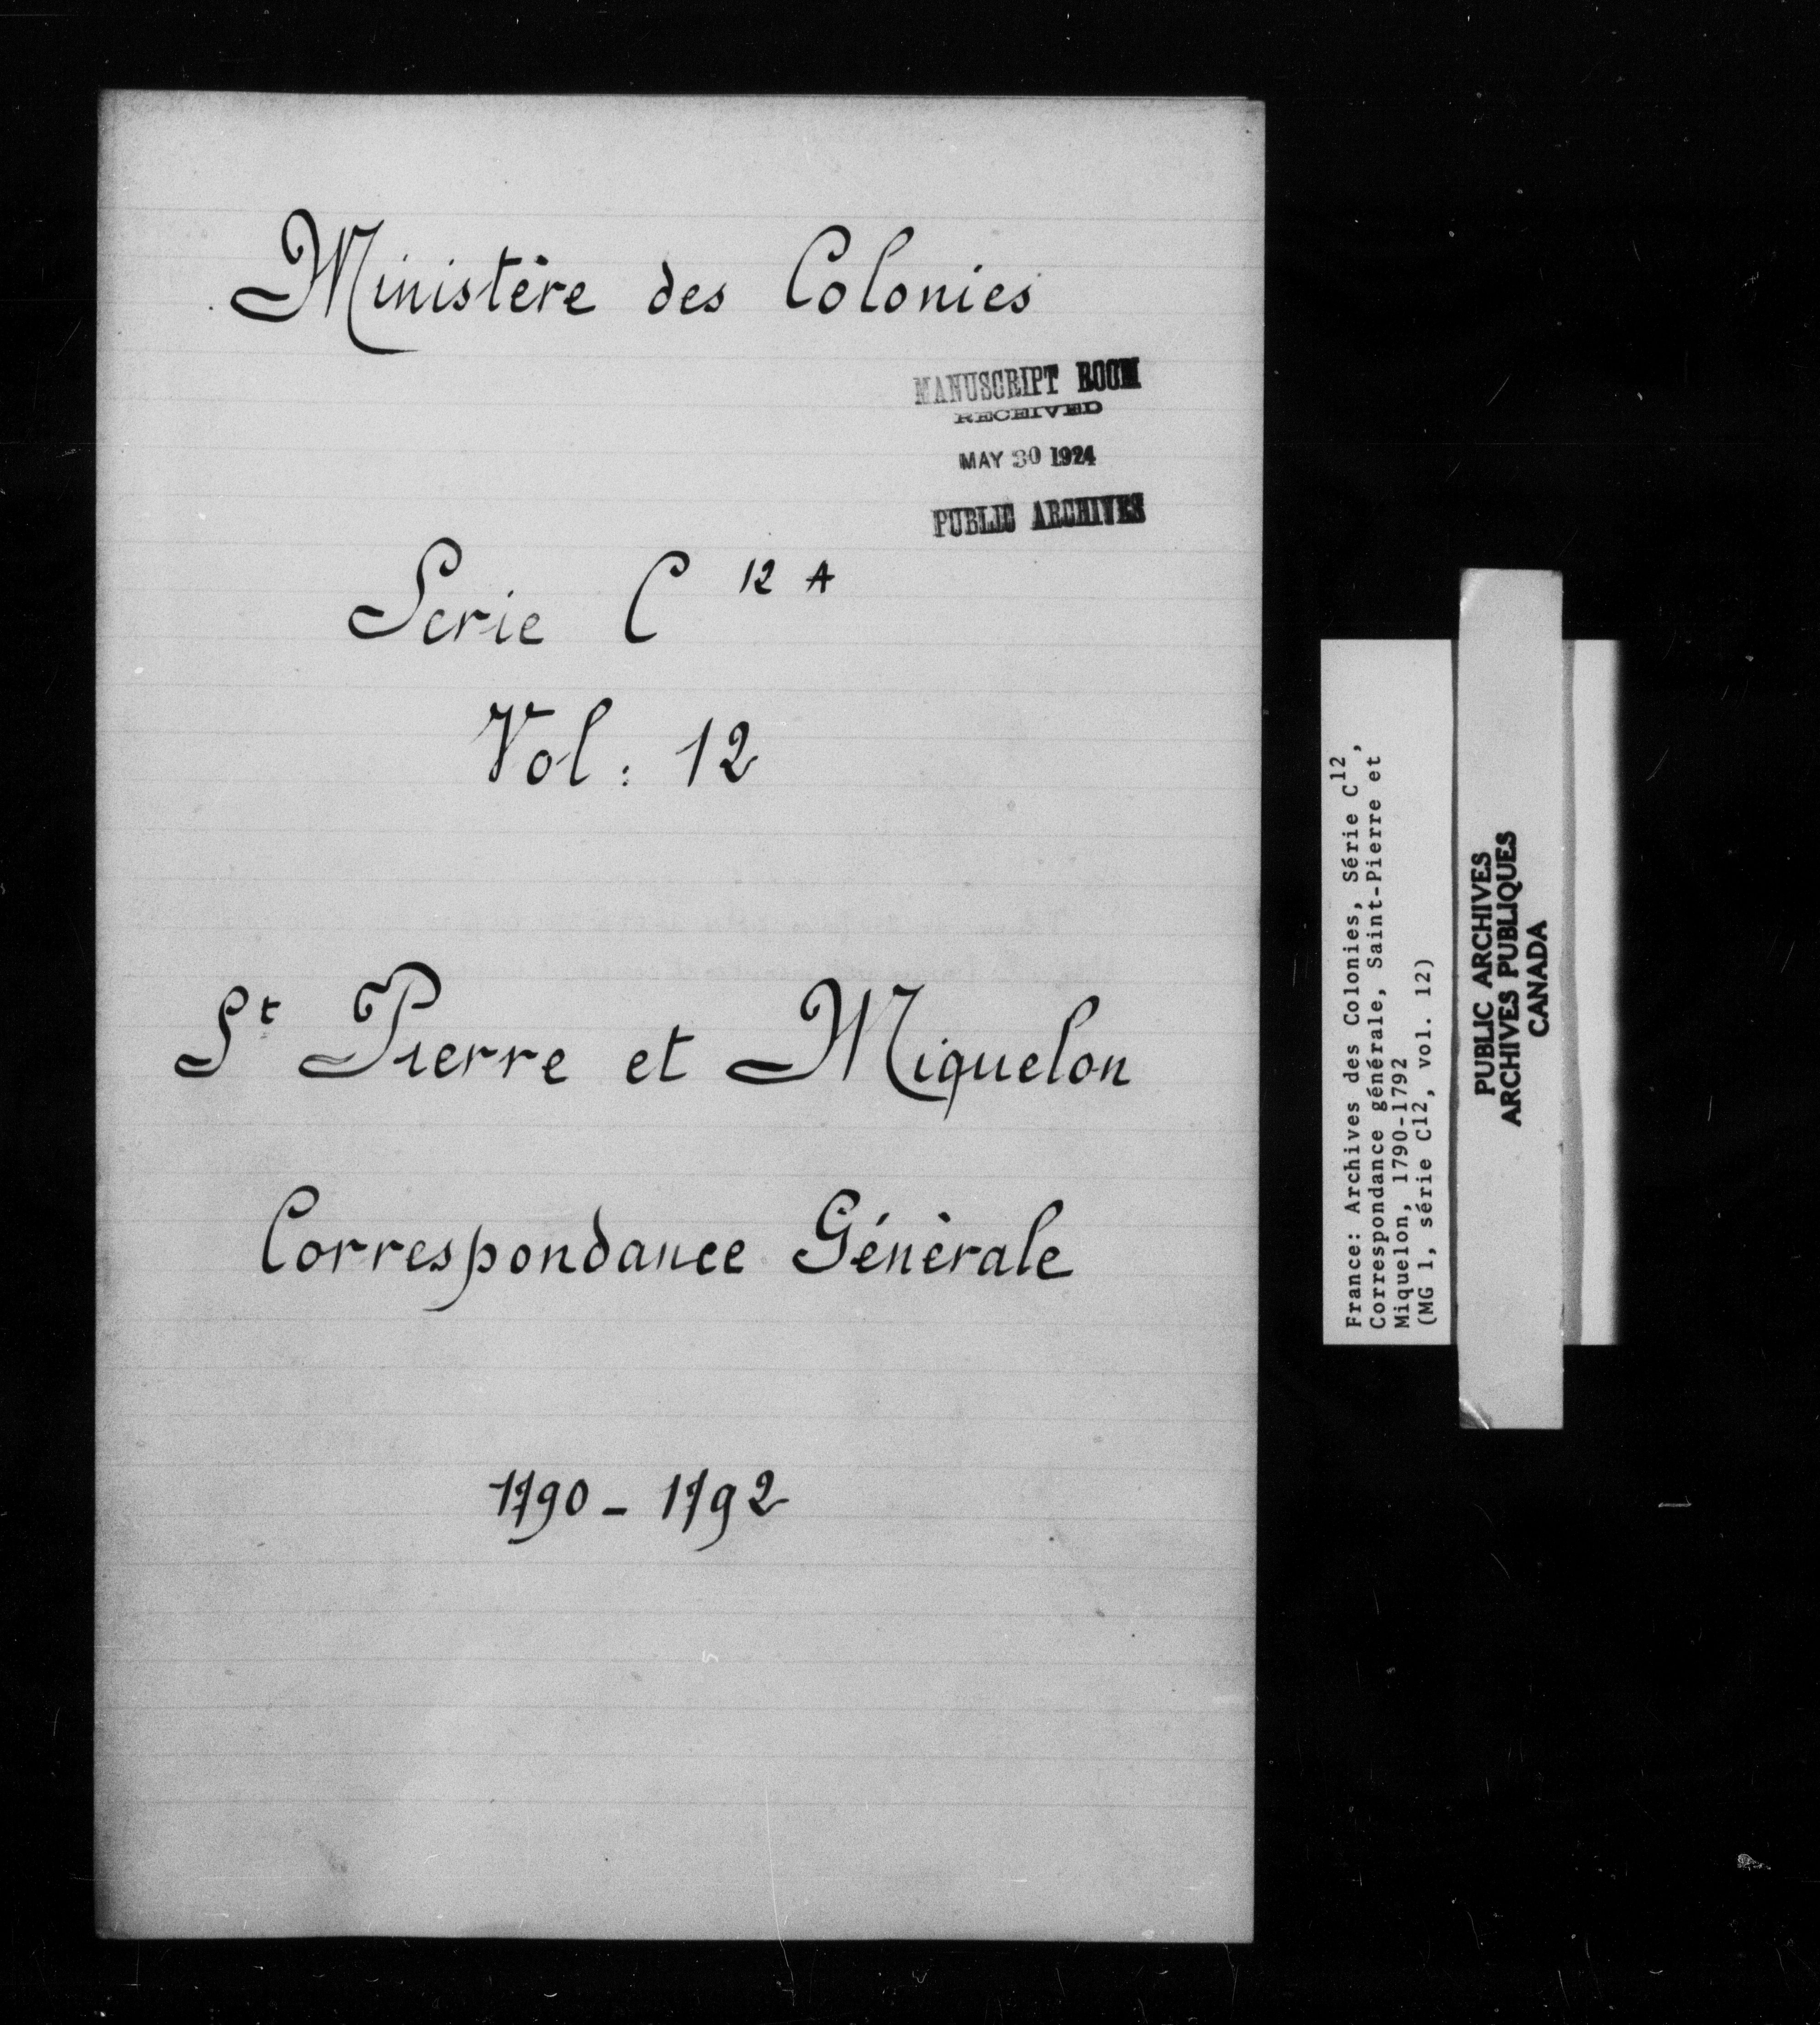 Ministère des Colonies
MANUSCRIPT ROOM
RECEIVED
MAY 30 1924
PUBLIC ARCHIVES
Serie C 12 A
Vol : 12
St Pierre et Miquelon
Correspondance Générale
1790 - 1792
France: Archives des Colonies, Série C12,
Correspondance générale, Saint-Pierre et
Miquelon, 1790-1792
(MG 1, série C12, vol. 12)
PUBLIC ARCHIVES
ARCHIVES PUBLIQUES
CANADA